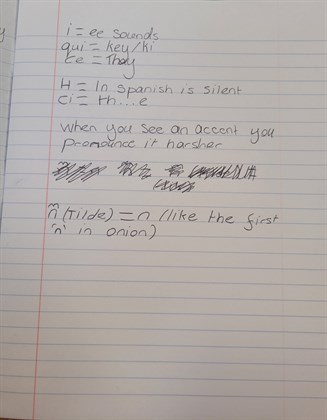 i = ee sounds
qui = key/ki
ce = They
H = In spanish is silent
ci = th...e
when you see an accent you
pronounce it harsher
ñ (Tilde) = n (like the first
'n' in onion)